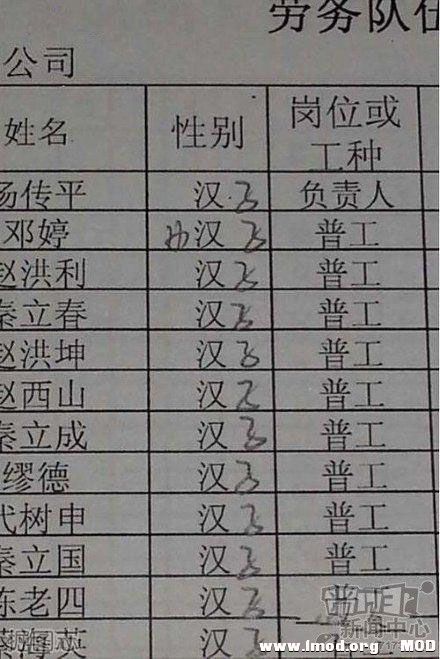 劳务队
公司
姓名 性别 岗位或工种
杨传平 汉子 负责人
邓婷 女汉子 普工
赵洪利 汉子 普工
秦立春 汉子 普工
赵洪坤 汉子 普工
赵西山 汉子 普工
秦立成 汉子 普工
缪德 汉子 普工
代树申 汉子 普工
秦立国 汉子 普工
陈老四 汉子 普工
汉子
新闻中心
www.lmod.org MOD